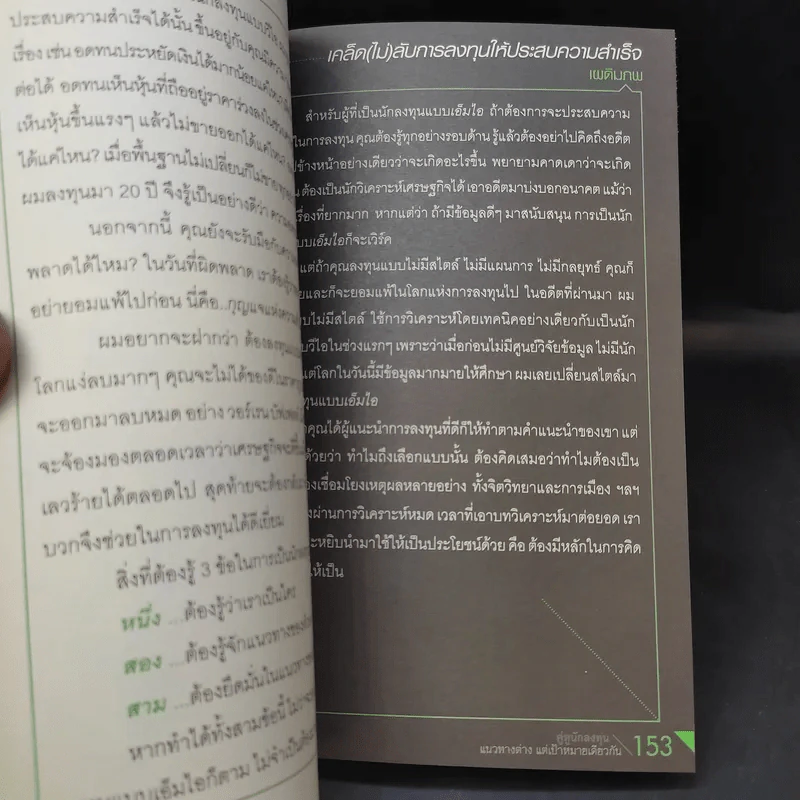 นักลงทุนแบบวีไอ
ประสบความสำเร็จได้นั้น ขึ้นอยู่กับคุณมีความ
เรื่อง เช่น อดทนประหยัดเงินได้มากน้อยแค่ไหน
ต่อได้ อดทนเห็นหุ้นที่ถืออยู่ราคาร่วงลง
เห็นหุ้นขึ้นแรงๆ แล้วไม่ขายออกได้แค่ไหน
ได้แค่ไหน? เมื่อพื้นฐานไม่เปลี่ยนก็ไม่ขาย
ผมลงทุนมา 20 ปี จึงรู้เป็นอย่างดีว่า ความ
นอกจากนี้ คุณยังจะรับมือกับความ
พลาดได้ไหม? ในวันที่ผิดพลาด เราต้อง
อย่ายอมแพ้ไปก่อน นี่คือ..กุญแจแห่งความ
ผมอยากจะฝากว่า ต้องลงทุน
โลกแง่ลบมากๆ คุณจะไม่ได้ของดี
จะออกมาลบหมด อย่าง วอร์เรน บัฟเฟตต์
จะจ้องมองตลอดเวลาว่าเศรษฐกิจจะ
เลวร้ายได้ตลอดไป สุดท้ายจะต้อง
บวกจึงช่วยในการลงทุนได้ดีเยี่ยม
สิ่งที่ต้องรู้ 3 ข้อในการเป็นนัก
หนึ่ง ...ต้องรู้ว่าเราเป็นใคร
สอง ...ต้องรู้จักแนวทางของ
สาม ...ต้องยึดมั่นในแนวทาง
หากทำได้ทั้งสามข้อนี้ ไม่ว่า
แบบเอ็มไอก็ตาม ไม่จำเป็น
...เคล็ด(ไม่)ลับการลงทุนให้ประสบความสำเร็จ
เผดิมภพ
สำหรับผู้ที่เป็นนักลงทุนแบบเอ็มไอ ถ้าต้องการจะประสบความ
ในการลงทุน คุณต้องรู้ทุกอย่างรอบด้าน รู้แล้วต้องอย่าไปคิดถึงอดีต
ข้างหน้าอย่างเดียวว่าจะเกิดอะไรขึ้น พยายามคาดเดาว่าจะเกิด
ต้องเป็นนักวิเคราะห์เศรษฐกิจได้ เอาอดีตมาบ่งบอกอนาคต แม้ว่า
เรื่องที่ยากมาก หากแต่ว่า ถ้ามีข้อมูลดีๆ มาสนับสนุน การเป็นนัก
แบบเอ็มไอก็จะเวิร์ค
แต่ถ้าคุณลงทุนแบบไม่มีสไตล์ ไม่มีแผนการ ไม่มีกลยุทธ์ คุณก็
และก็จะยอมแพ้ในโลกแห่งการลงทุนไป ในอดีตที่ผ่านมา ผม
แบบไม่มีสไตล์ ใช้การวิเคราะห์โดยเทคนิคอย่างเดียวกับเป็นนัก
วีไอในช่วงแรกๆ เพราะว่าเมื่อก่อนไม่มีศูนย์วิจัยข้อมูล ไม่มีนัก
แต่โลกในวันนี้มีข้อมูลมากมายให้ศึกษา ผมเลยเปลี่ยนสไตล์มา
ทุนแบบเอ็มไอ
คุณได้ผู้แนะนำการลงทุนที่ดีก็ให้ทำตามคำแนะนำของเขา แต่
ด้วยว่า ทำไมถึงเลือกแบบนั้น ต้องคิดเสมอว่าทำไมต้องเป็น
เชื่อมโยงเหตุผลหลายอย่าง ทั้งจิตวิทยาและการเมือง ฯลฯ
ผ่านการวิเคราะห์หมด เวลาที่เอาบทวิเคราะห์มาต่อยอด เรา
จะหยิบนำมาใช้ให้เป็นประโยชน์ด้วย คือ ต้องมีหลักในการคิด
ให้เป็น
คู่หูนักลงทุน
แนวทางต่าง แต่เป้าหมายเดียวกัน
153